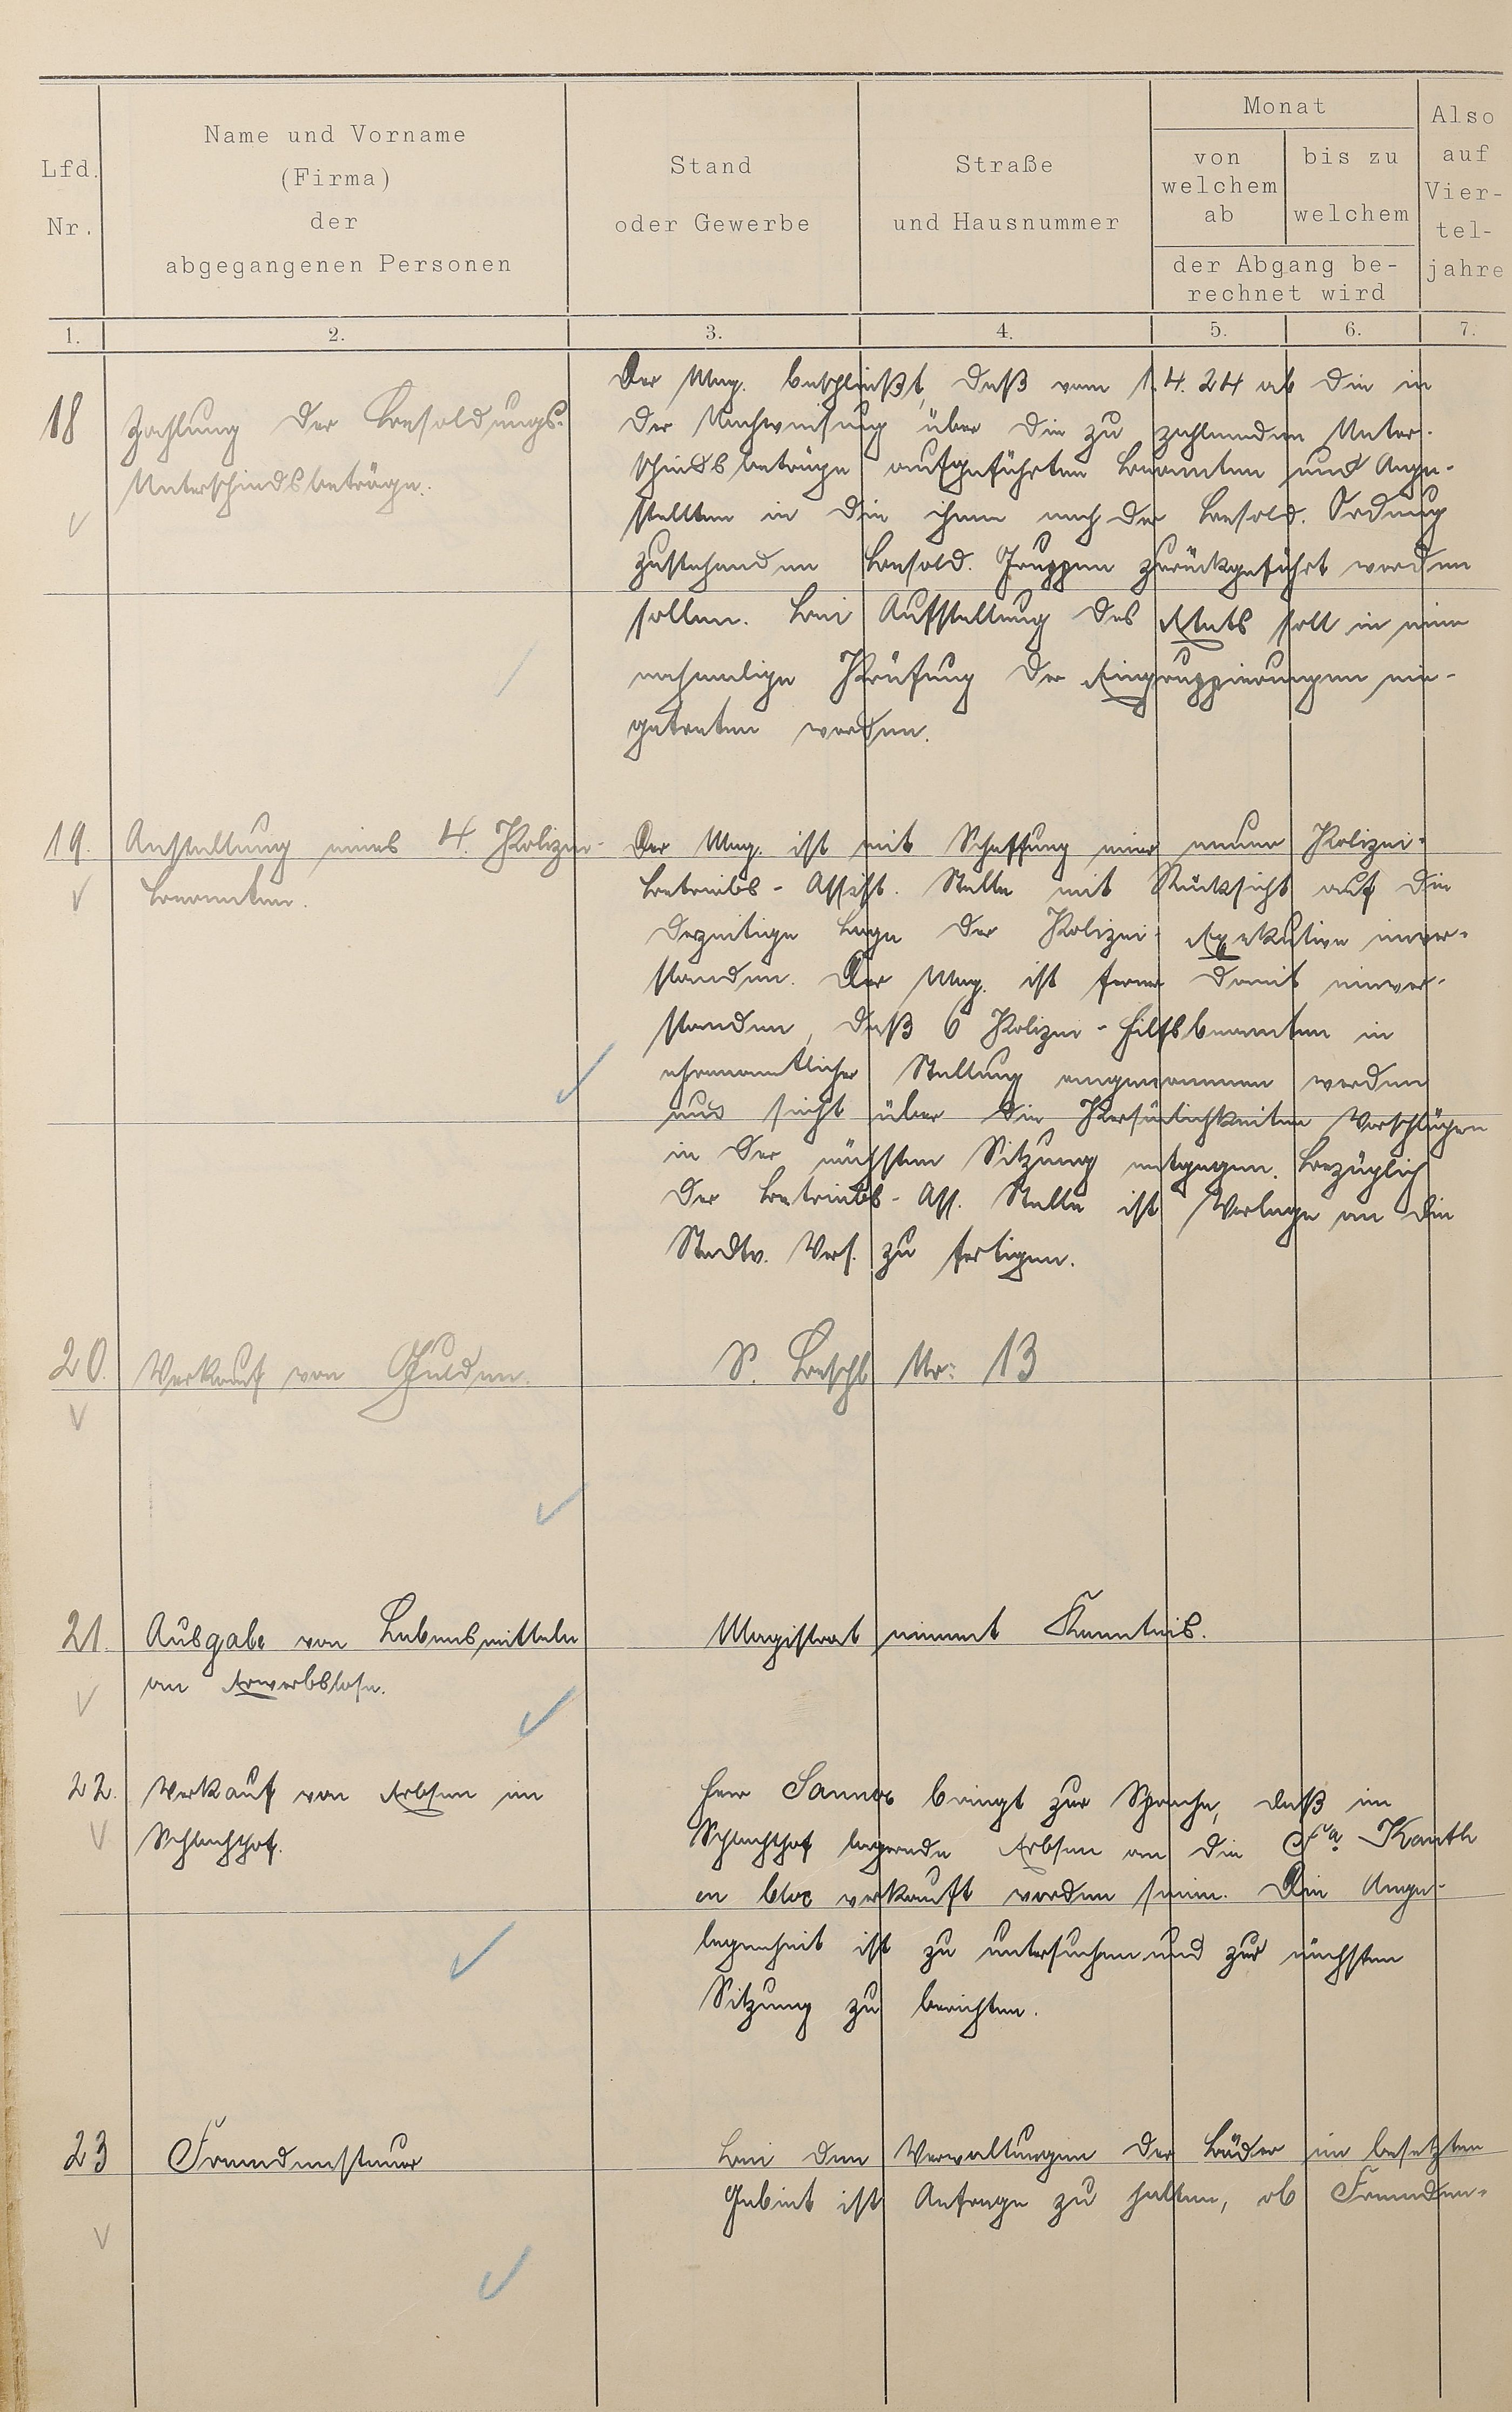 Lfd. Nr.
Name und Vorname
(Firma)
der
abgegangenen Personen
Stand
oder Gewerbe
Straße
und Hausnummer
Monat
von
welchem
ab
bis zu
welchem
der Abgang be-
rechnet wird
Also
auf
Vier-
tel-
jahre
1. 2. 3. 4. 5. 6. 7.
18
Zahlung der Besoldungs-
Unterschiedsbeträge.
Der Mag. beschließt, daß vom 1.4.24 ab die in
der Nachweisung über die zu zahlenden Unter-
schiedsbeträge aufgeführten Beamten und Ange-
stellten in die ihnen nach der Besold. Ordnung
zustehenden Besold. Gruppen zurückgeführt werden
sollen. Bei Aufstellung des Etats soll in eine
nochmalige Prüfung der Eingruppierungen ein-
getreten werden.
19.
Anstellung eines 4. Polizei-
beamten.
Der Mag. ist mit Schaffung einer neuen Polizei-
betriebs-Assist. Stelle mit Rücksicht auf die
derzeitige Lage der Polizei-Exekutive einver-
standen. Der Mag. ist ferner damit einver-
standen, daß 6 Polizei-Hilfsbeamten in
ehrenamtlicher Stellung angenommen werden
und sieht über die Persönlichkeiten Vorschlägen
in der nächsten Sitzung entgegen. Bezüglich
der Betriebs-Ass. Stelle ist Vorlage an die
Stadtv. Vers. zu fertigen.
20.
Verkauf von Gulden.
S. Beschl. Nr: 13
21.
Ausgabe von Lebensmitteln
an Erwerbslose.
Magistrat nimmt Kenntnis.
22.
Verkauf von Erbsen im
Schlachthof.
Herr bringt zur Sprache, daß im
Schlachthof lagernde Erbsen an die Fa. Kanth
en bloc verkauft worden seien. Die Ange-
legenheit ist zu untersuchen und zur nächsten
Sitzung zu berichten.
23
Fremdensteuer
Bei den Verwaltungen der Bäder im besetzten
Gebiet ist Anfrage zu halten, ob Fremden-